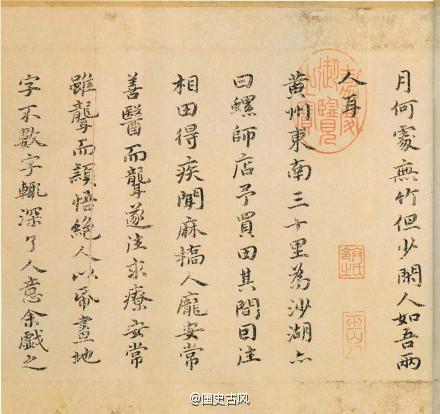 月何處無竹但少閑人如吾兩
人耳
黄州東南三十里為沙湖亦
曰螺師店予買田其間因往
相田得疾聞麻橋人龐安常
善醫而聾遂往求療安常
雖聾而穎悟絕人以帋畫地
字不數字輒深了人意余戲之
御覽
@国史古风